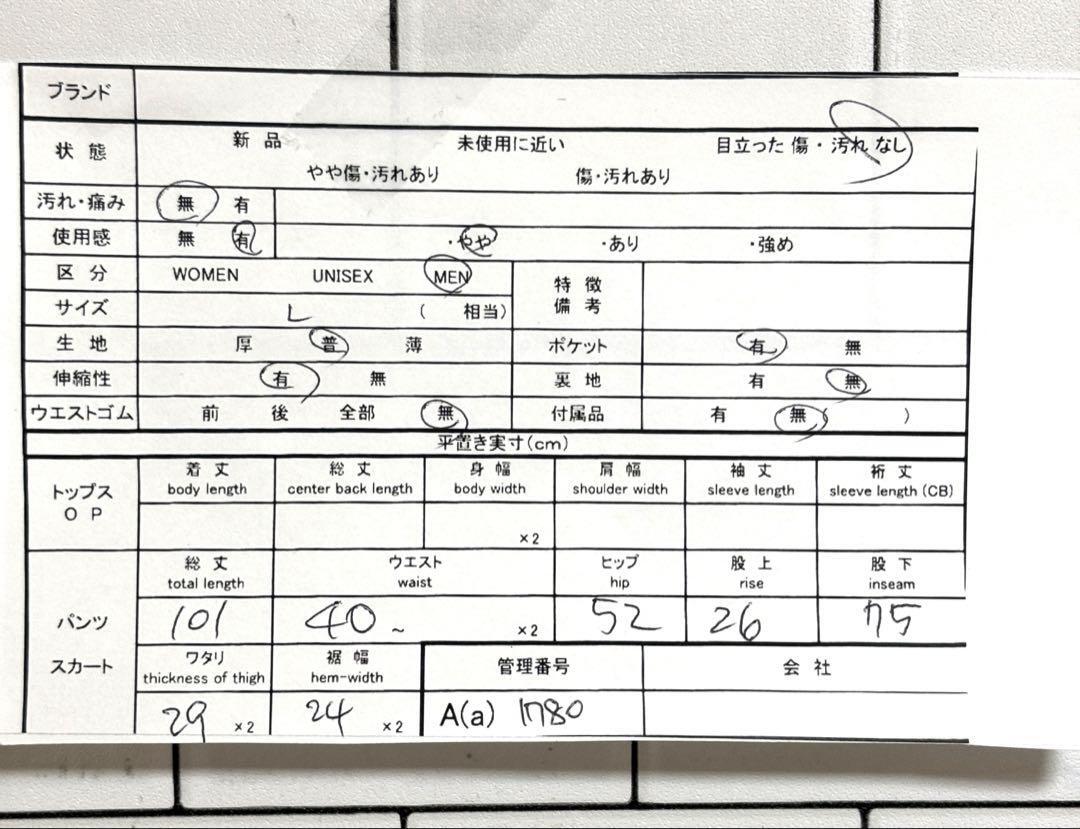 ブランド
状態 新品 未使用に近い 目立った傷・汚れなし
やや傷・汚れあり 傷・汚れあり
汚れ・痛み 無 有
使用感 無 有 ・やや ・あり ・強め
区分 WOMEN UNISEX MEN 特徴
備考
サイズ L ( 相当)
生地 厚 普 薄 ポケット 有 無
伸縮性 有 無 裏地 有 無
ウエストゴム 前 後 全部 無 付属品 有 無( )
平置き実寸(cm)
トップス
OP
着丈 総丈 身幅 肩幅 袖丈 裄丈
body length center back length body width shoulder width sleeve length sleeve length (CB)
×2
パンツ
スカート
総丈 ウエスト ヒップ 股上 股下
total length waist hip rise inseam
101 40 ~ ×2 52 26 75
ワタリ 裾幅 管理番号 会社
thickness of thigh hem-width
29 ×2 24 ×2 A(a) 1780